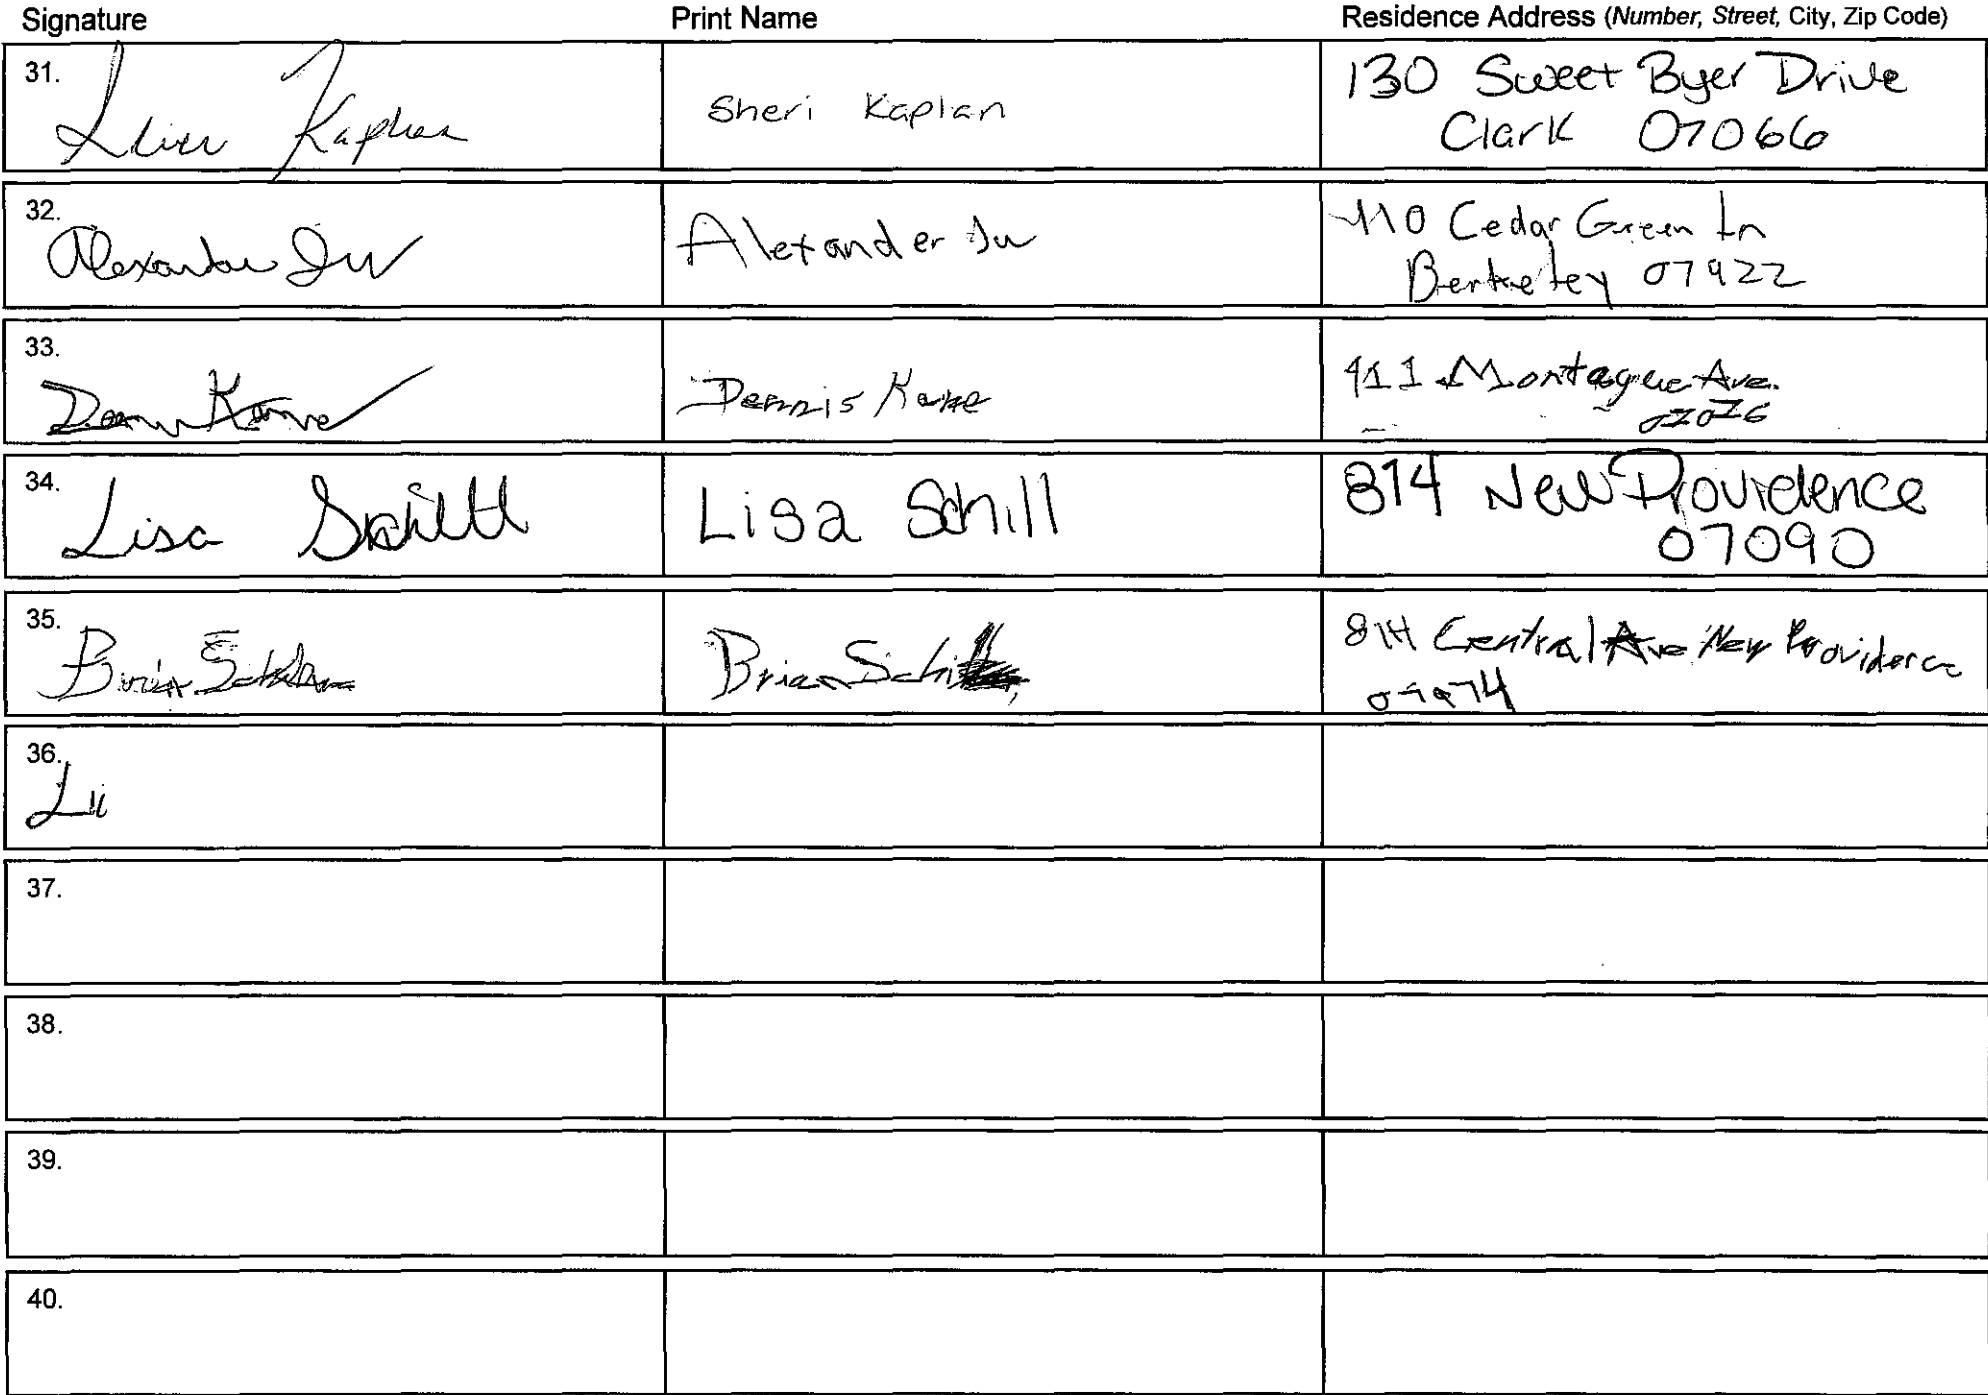 Signature Print Name Residence Address (Number, Street, City, Zip Code)
31.
Kaplan Sheri Kaplan 130 Sweet Byer Drive
Clark 07066
32.
Alexander Alexander 110 Cedar Green Ln
Berkeley 07922
33.
Dennis Kane 911 Montague Ave.
07076
34.
Lisa Schill Lisa Schill 814 New Providence
07090
35.
Brian Brian 814 Central Ave New Providence
07974
36.
37.
38.
39.
40.